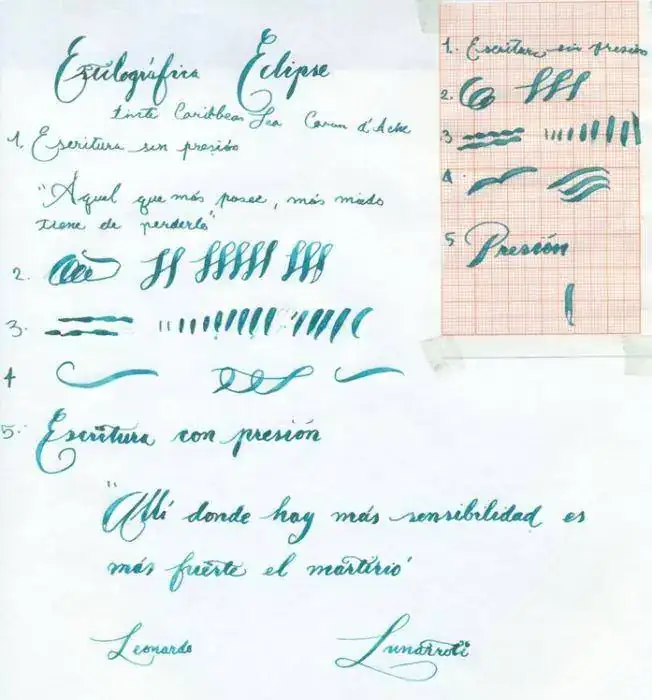 Estilográfica Eclipse
tinta Caribbean Sea Caran d'Ache
1. Escritura sin presión
"Aquel que más posee, más miedo
tiene de perderlo"
2.
3.
4
5. Escritura con presión
"Allí donde hay más sensibilidad es
más fuerte el martirio"
Leonardo Lunarroti
1. Escritura sin presión
2.
3
4.
5 Presión